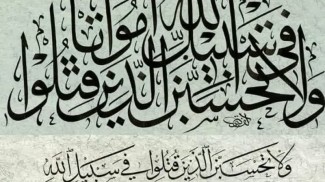 وَلَا تَحْسَبَنَّ الَّذِينَ قُتِلُوا فِي سَبِيلِ اللَّهِ أَمْوَاتًا
وَلَا تَحْسَبَنَّ الَّذِينَ قُتِلُوا فِي سَبِيلِ اللَّهِ